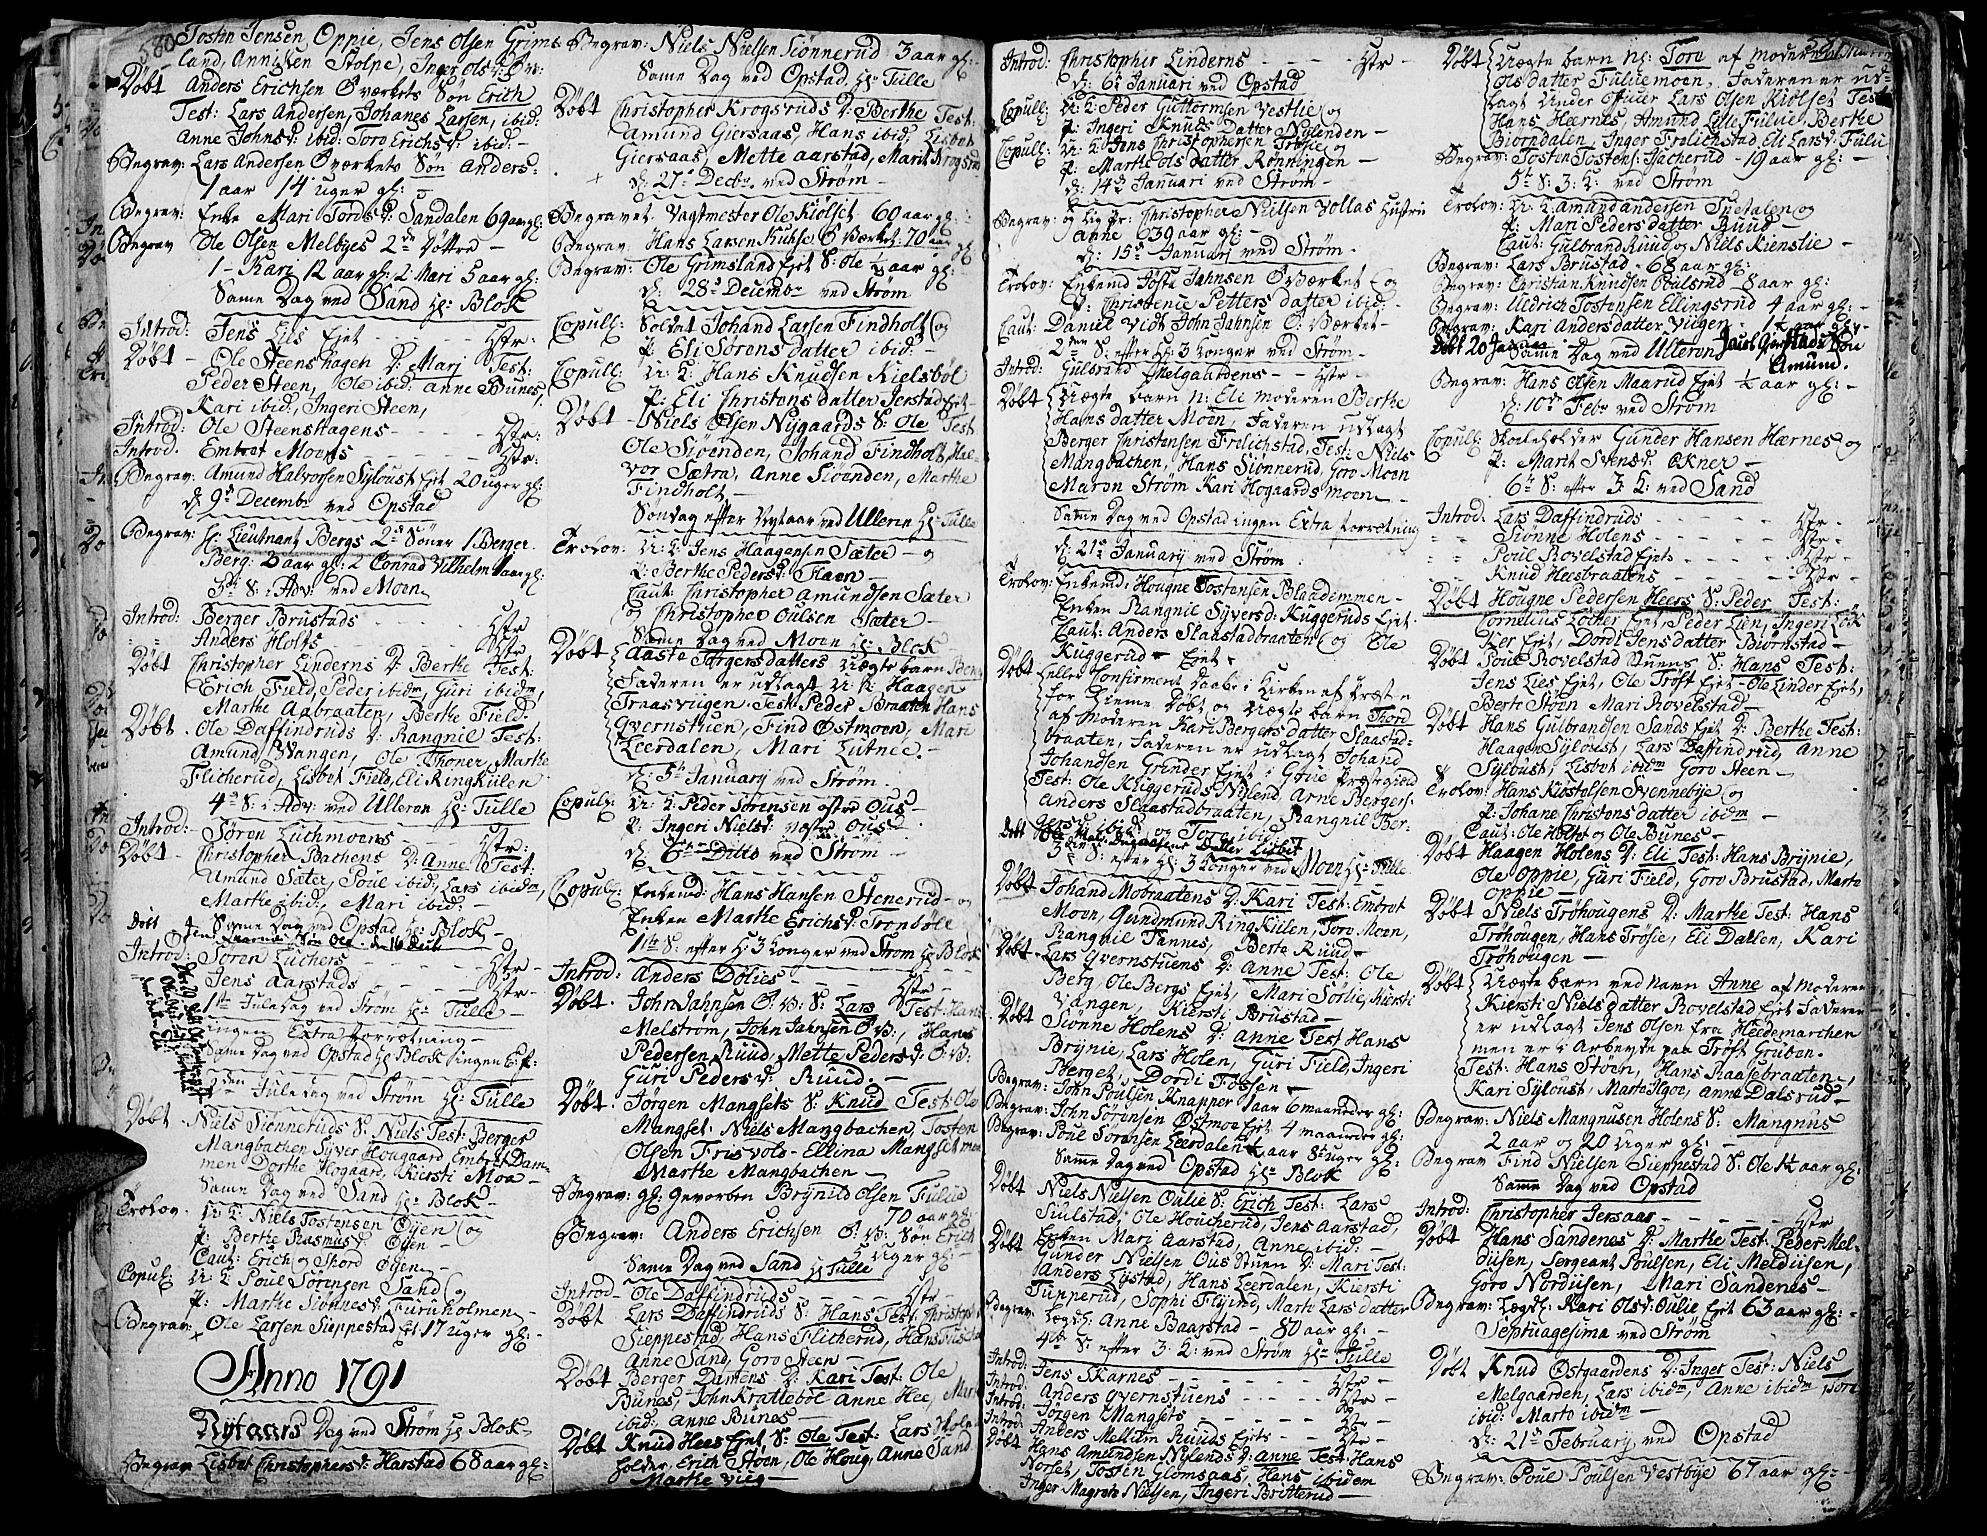 580
Tosten Jensen Oppie, Jens Olsen Grims
land, Annisten Stolpe, Inger Ols D:
Døbt Anders Erichsen Oværkets Søn Erich
Test: Lars Andersen, Johanes Larsen, ibid:
Anne Johns D: ibid: Toro Erichs D: ibid: —
Begrav: Lars Andersen Oværkets Søn Anders:
1 aar 14 uger gl:
Begrav: Enke Mari Tords D: Sandalen 69 aar gl:
Begrav Ole Olsen Melbyes 2de Døttre —
1 — Kari 12 aar gl: 2: Mari 5 aar gl:
Same Dag ved Sand Hr: Blok
Introd: Jens Lies Ejet — Hstr:
Døbt — Ole Steenshagen D: Mari Test:
Peder Steen, Ole ibid: Anne Bunes,
Kari ibid:, Ingeri Steen,
Introd: Ole Steenshagens — Hstr:
Introd. Embret Moens — Hstr:
Begrav: Amund Halvorsen Syloust Ejet 20 uger gl:
D: 9de Decembr ved Opstad
Begrav: Hr: Lieutnant Bergs 2de Sønner 1. Berger
Berg: 3 aar gl: 2 Conrad Vilhelm 1 aar gl:
3de S: i Adv: ved Moen
Introd: Berger Brustads — Hstr
Anders Holts — Hstr
Døbt Christopher Linderns D: Berthe Test:
Erich Field, Peder ibidm, Guri ibidm,
Marthe Aabraaten, Berthe Field.
Døbt. Ole Daffindruds D: Rangnil Test:
Amund Vangen, Ole Thoner, Marthe
Flicherud, Lisbet Field, Eli Ringkiilen
4de S: i Adv: ved Ulleren Hr: Tulle
Introd: Søren Luchmoens — Hstr:
Døbt — Christopher Bachens D: Anne Test:
Amund Sæter, Poul ibid:, Lars ibidm,
Marthe ibid:, Mari ibid: —
Same Dag ved Opstad Hr: Blok —
Introd: Søren Luchers — Hstr —
Jens Aarstads — Hstr —
1ste Juledag ved Strøm Hr: Tulle —
ingen Extra Forrætning —
Same Dag ved Opstad Hr Blok ingen Ext:
2den Juledag ved Strøm Hr: Tulle
Døbt. Niels Siønneruds S: Niels Test: Berger
Mangbachen Syver Hougaard Embret Dam-
men Dorthe Hogaard, Kiersti Moe —
Same Dag ved Sand Hr: Blok —
Trolov. U: K: Niels Tostensen Øyen og
P: Berthe Rasmus D: Øyen —
Caut: Erich og Thord Øyen —
Copul: U: K: Poul Sørensen Sand og
P: Marthe Siønnes D: Furuholmen —
Begrav: Ole Larsen Sieppestad Ejt 17 uger gl: —
Anno 1791
Nytaars Dag ved Strøm Hr Blok —
Begrav Lisbet Christophers D: Harstad 68 aar gl:
Begrav: Niels Nielsen Siønnerud 3 aar gl:
Same Dag ved Opstad Hr: Tulle
Døbt Christopher Krogsruds D: Berthe Test:
Amund Giersaas, Hans ibid: Lisbet
Giersaas, Mette Aarstad, Marit Krogsrud
D: 27de Decbr. ved Strøm —
Begravet. Vagtmester Ole Kiølset 60 aar gl:
Begrav: Hans Larsen Kuhse O Værket: 70 aar gl
Begrav: Ole Grimsland Ejet S: Ole ¼ aar gl:
D: 28de Decembr ved Strøm
Copull: Soldat Johand Larsen Findholt og
P: Eli Sørens datter ibid: —
Copull: U: K: Hans Knudsen Kielsbøl
P: Eli Christens datter Jerstad Ejet —
Døbt — Niels Olsen Nygaards S: Ole Test
Ole Siønden, Johand Findholt, Hal-
vor Sætra, Anne Siøenden, Marthe
Findholt —
Søndag efter Nytaar ved Ulleren Hr Tulle
Trolov: U: K: Jens Haagensen Sæter — og
P: Berthe Peders D: Haen —
Caut: Christopher Amundsen Sæter
og Christopher Oulsen Sæter —
Same Dag ved Moen Hr: Blok
Døbt Aaste Torgers datters Uægte barn
Faderen er udlagt U: K: Haagen
Traasviigen. Test: Peder Braaten Hans
Qvernstuen, Find Østmoen, Mari
Leerdalen, Mari Lutnee. —
D: 5te January ved Strøm —
Copul: U: K: Peder Sørensen østre Ous —
P: Ingeri Niels D: vestre Ous D.
D: 6te Ditto ved Strøm —
Copul: Enkemd: Hans Hansen Stenerud — og
Enken Marthe Erichs D: Trombøl
1ste S: efter H: 3 Konger ved Strøm Hr Blok
Introd: Anders Dølies — Hstr —
Døbt. John Jahnsen O: V: S: Lars Test: Hans
Melstrøm, John Jahnsen O: V:, Hans
Pedersen Ruud, Mette Peders D: O: V:
Guri Peders D: Ruud. —
Døbt. Jørgen Mangsets S: Knud Test: Ole
Mangset: Niels Mangbachen, Tosten
Olsen Frisvold — Ellina Mangset
Marthe Mangbachen —
Begrav: gl: Gevorben Brynild Olsen Fulue
70 aar gl:
Begrav: Anders Erichsen O: V: Søn Erich
uger gl: —
Same Dag ved Sand Hr Tulle
Introd — Ole Daffindruds — Hstr —
Døbt Lars Daffindruds S: Hans Test: Christoph
Sieppestad, Hans Flicherud, Hans
Anne Sand, Goro Steen —
Døbt Berger Damens D: Kari Test: Ole
Bunes, John Krattebøl Anne Hee, Mari
ibid: Anne Bunes —
Døbt Knud Hees Ejet S: Ole Test: Lars
holder, Erich Støen, Ole Houg, Anne Sand
Marthe Viig —
Introd: Christopher Linderns — Hstr —
D: 6te Januari ved Opstad
Copull: U: K: Peder Guttormsen Vestlie og
P: Ingeri Knuds Datter Nylenden —
Copull: U: K: Jens Christophersen Trøsie og
P: Marthe Ols datter Rønningen —
D: 14de Januari ved Strøm —
Begrav: og Lig Pr: Christopher Nielsen Vollas Hustrue
Anne 39 aar gl: —
D: 15de January ved Strøm —
Trolov: Enkemd Jøste Jahnsen O Værket og
P: Christence Petters datter ibid: —
Caut: Daniel Vidt John Jahnsen O: Værket —
2den S: efter H: 3 Konger ved Strøm —
Introd: Gulbrand Melgaardens — Hstr —
Døbt Uægte barn n: Eli moderen Berthe
Hans datter Moen, Faderen udlagt
Berger Christensen Frølichstad, Test: Niels
Mangbachen, Hans Siønnerud, Goro Moen
Maren Strøm Kari Hogaardsmoen —
Same Dag ved Opstad ingen Extra Forrætning
D: 21de January ved Strøm
Trolov: Enkemd: Hougne Tostensen Blaadammen —
Enken Rangnil Syvers D: Kuggeruds Ejet.
Caut: Anders Slaastadbraaten og Ole
Kuggerud — Ejet —
Døbt eller Confirment Daab i Kirken af Præsten
for hieme Døbt og Uægte barn Thord
af Moderen Kari Bergers datter Slaastad-
braaten, Faderen er udlagt Johand
Johandsen Grinder Ejet i Grue Præstegield
Test: Ole Kuggeruds Nylend Arne Bergers:
Anders Slaastadbraaten, Rangnil Ber-
gers D: ibid: og Toro ibid:
3die S: efter H: 3 Konger ved Moen Hr: Tulle
Døbt Johand Mobraatens D: Kari Test: Embret
Moen, Gundmund Ringkiilen, Toro Moen,
Rangnil Tannes, Berte Ruud —
Døbt. Lars Qvernstuens D: Anne Test: Ole
Berg, Ole Bergs Ejet, Mari Sørlie, Kiersti
Vangen, Kiersti Brustad —
Døbt Siønne Holens D: Anne Test Hans
Brynie, Lars Holen, Guri Field, Ingeri
Berget, Dordi Fossen —
Begrav: John Poulsen Knapper 1 aar 6 maaneder gl:
Begrav: John Sørensen Østmoe Ejet 4 maaneder gl:
Begrav: Poul Sørensen Leerdalen aar 8 uger gl:
Same Dag ved Opstad Hr Blok
Døbt Niels Nielsen Oulie S: Erich Test: Lars
Siulstad, Ole Houcherud, Jens Aarstad,
Enken Mari Aarstad, Anne ibid: —
Døbt Gunder Nielsen Ous Stuen D: Mari Test:
Anders Lystad, Hans Leerdalen, Kiersti
Tupperud, Sophi Flyind, Marte Lars datter
Begrav: Lægdsl: Anne Baarstad — 80 aar gl: —
4de S: efter 3: K: ved Strøm Hr: Tulle
Introd: Jens Skarnes — Hstr —
Introd: Anders Qvernstuens — Hstr —
Introd: Jørgen Mangsets — Hstr
Introd: Anders Mellum Ruuds Ejets — Hstr —
Døbt Hans Amundsen Nylends D: Anne Test Hans
Norset, Tosten Glomsaas, Hans ibidem
Inger Magrete Nielsen, Ingeri Britterud —
Døbt Uægte barn N: Toro af moderen
Ols datter Fuluemoen, Faderen er ud-
lagt Under Officer Lars Olsen Kiølset Test
Hans Hærnes, Amund Lille Fulue Berthe
Biørndalen, Inger Frølichstad, Eli Lars D: Fulu
Begrav: Tosten Tostens: Sacherud — 19 aar gl: —
5te S: 3: K: ved Strøm
Trolov: U: K: Amund Andersen Tuetalen og
P: Mari Peders datter Ruud —
Caut: Gulbrand Ruud og Niels Kienslie —
Begrav: Lars Brustad — 68 aar gl:
Begrav: Christian Knudsen Poulsrud 8 aar gl:
Begrav: Uldrich Tostensen Ellingsrud 4 aar gl: —
Begrav: Kari Anders datter Viiger
Døbt 20 Januar
Same Dag ved Ulleren
Amund.
Begrav: Hans Olsen Maarud Ejet ¼ aar gl: —
D: 10de Febr ved Strøm
Copull: Skoleholder Gunder Hansen Hærnes og
P: Marit Svens D: Økner —
6te S: efter 3: K: ved Sand
Introd. Lars Daffindruds — Hstr —
Siønne Holens — Hstr —
Poul Rovelstad Ejets — Hstr —
Knud Heesbraatens — Hstr —
Døbt Hougne Pedersen Heers S: Peder Test:
Cornelius Løcker Ejet, Peder Lien, Ingeri Løc
ker Ejet, Dordi Jens datter Biørnstad —
Døbt Poul Rovelstad Stuens S: Hans Test:
Jens Lies Ejet, Ole Trøft Ejet — Ole Linder Ejet,
Berte Støen Mari Rovelstad —
Døbt Hans Gulbrandsen Sands Ejet D: Berthe Test:
Haagen Syloust, Lars Daffindrud, Anne
Syloust, Lisbet ibidm Goro Steen —
Trolov: Hans Kiostolsen Svennebye og
P: Johane Christens datter ibidm —
Caut: Ole Holset og Ole Bunes —
Døbt Haagen Holens D: Eli Test: Hans Brynie,
Ole Oppie, Guri Field, Goro Brustad, Marte
Oppie —
Døbt Niels Trøhougens D: Marthe Test: Hans
Trøhougen, Hans Trøsie, Eli Dalsen, Kari
Trøhougen —
Døbt Uægte barn ved Navn Anne af Moderen
Kiersti Niels datter Rovelstad Ejet Faderen
er udlagt Jens Olsen fra Heedemarchen
men er i Arbeyde paa Trøft Gruben.
Test: Hans Støen, Hans Raasebraaten,
Kari Syloust, Marte Hgoe, Anne Dalsrud —
Begrav: Niels Mangnusen Holens S: Mangnus
2 aar og 20 uger gl: —
Begrav Find Nielsen Sieppestad S: Ole 1½ aar gl:
Same Dag ved Opstad
Introd: Christopher Jersaas — Hstr
Døbt Hans Sandenes D: Marthe Test: Peder Mel-
diisen, Sergeant Poulsen, Eli Meldiisen,
Goro Nordiisen, Mari Sandenes —
Begrav: Lægdsl: Kari Ols D: Oulie Ejet 63 aar gl: —
Septuagesima ved Strøm
Døbt Knud Østgaardens D: Inger Test: Niels
Melgaarden, Lars ibidm, Anne ibidm
ibid: Marte ibidm —
D: 21de February ved Opstad
Begrav: Poul Poulsen Vestbye 67 aar gl: —